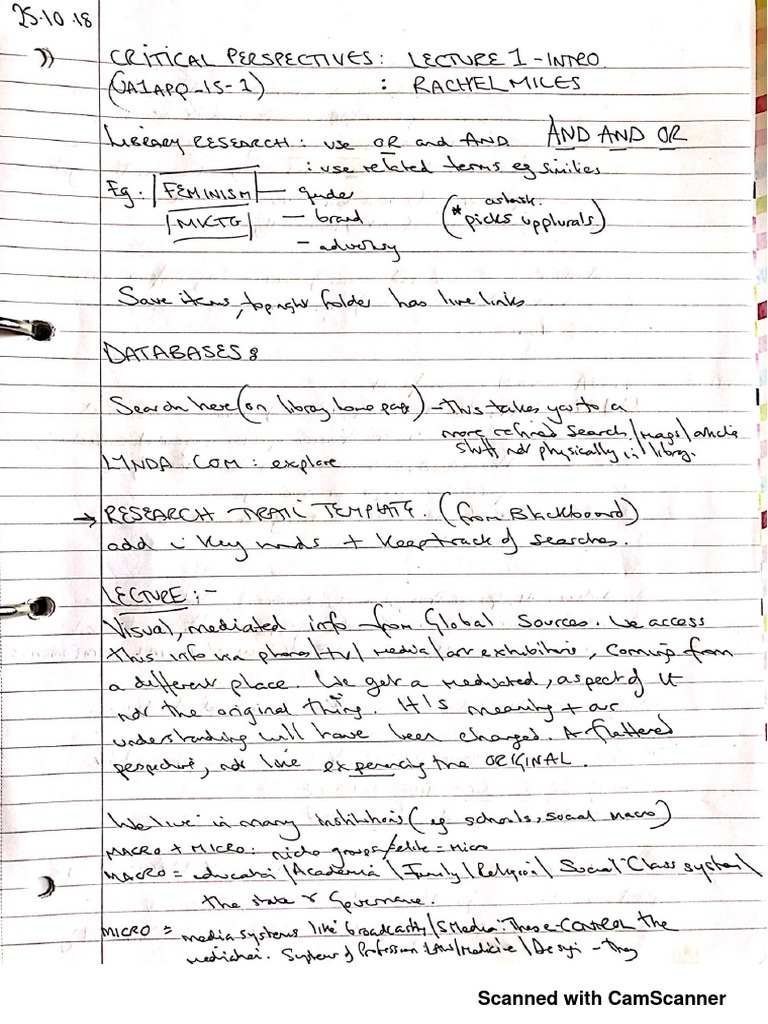 25.10.18
CRITICAL PERSPECTIVES: LECTURE 1 - INTRO
(UA1APQ-15-1) : RACHEL MILES
LIBRARY RESEARCH: use OR and AND AND AND OR
: use related terms eg similies
Eg. FEMINISM - gender
MKTG - brand
- advertisg
(* astask. picks up plurals.)
Save items, top right folder has live links
DATABASES:
Search here (on library home page) - This takes you to a
more refined search/mags/article
stuff not physically in library.
LYNDA.COM: explore
→ RESEARCH TRAIL TEMPLATE. (from Blackboard)
add i key words + keep track of searches.
LECTURE:-
Visual, mediated info from Global Sources. We access
this info via phone/tv/media/art exhibitions, coming from
a different place. We get a mediated, aspect of it
not the original thing. It's meaning + our
understanding will have been changed. A flattered
perspective, not live experiencing the ORIGINAL.
We live in many Institutions (eg schools, social macro)
MACRO + MICRO: niche groups/elite = micro
MACRO = education/Academia/Family/Religion/Social-Class system/
the state & Governance.
MICRO = media systems like broadcasting/S Media: These CONTROL the
Systems of Profession: Law/Medicine/Design - they
Scanned with CamScanner